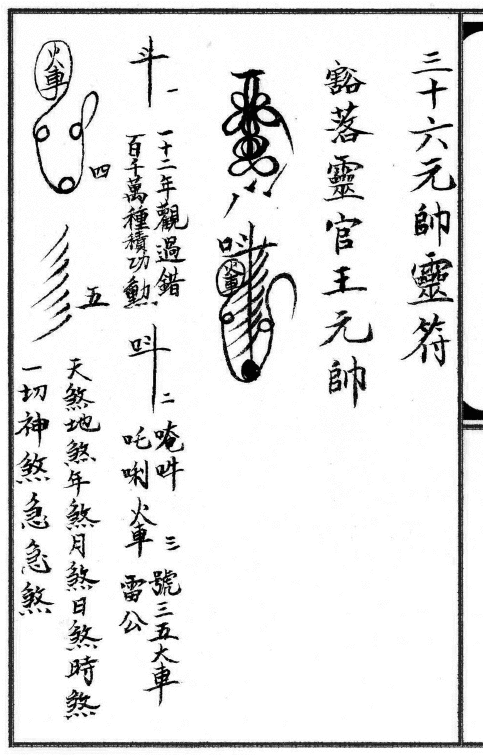 三十六元帥靈符
豁落靈官王元帥
𠮟
火車
斗 一
一十二年觀過錯
百千萬種積功勳
𠮟 二
唵吽
吒唎火車 三
號三五大車
雷公
火車 四
五
天煞地煞年煞月煞日煞時煞
一切神煞急急煞